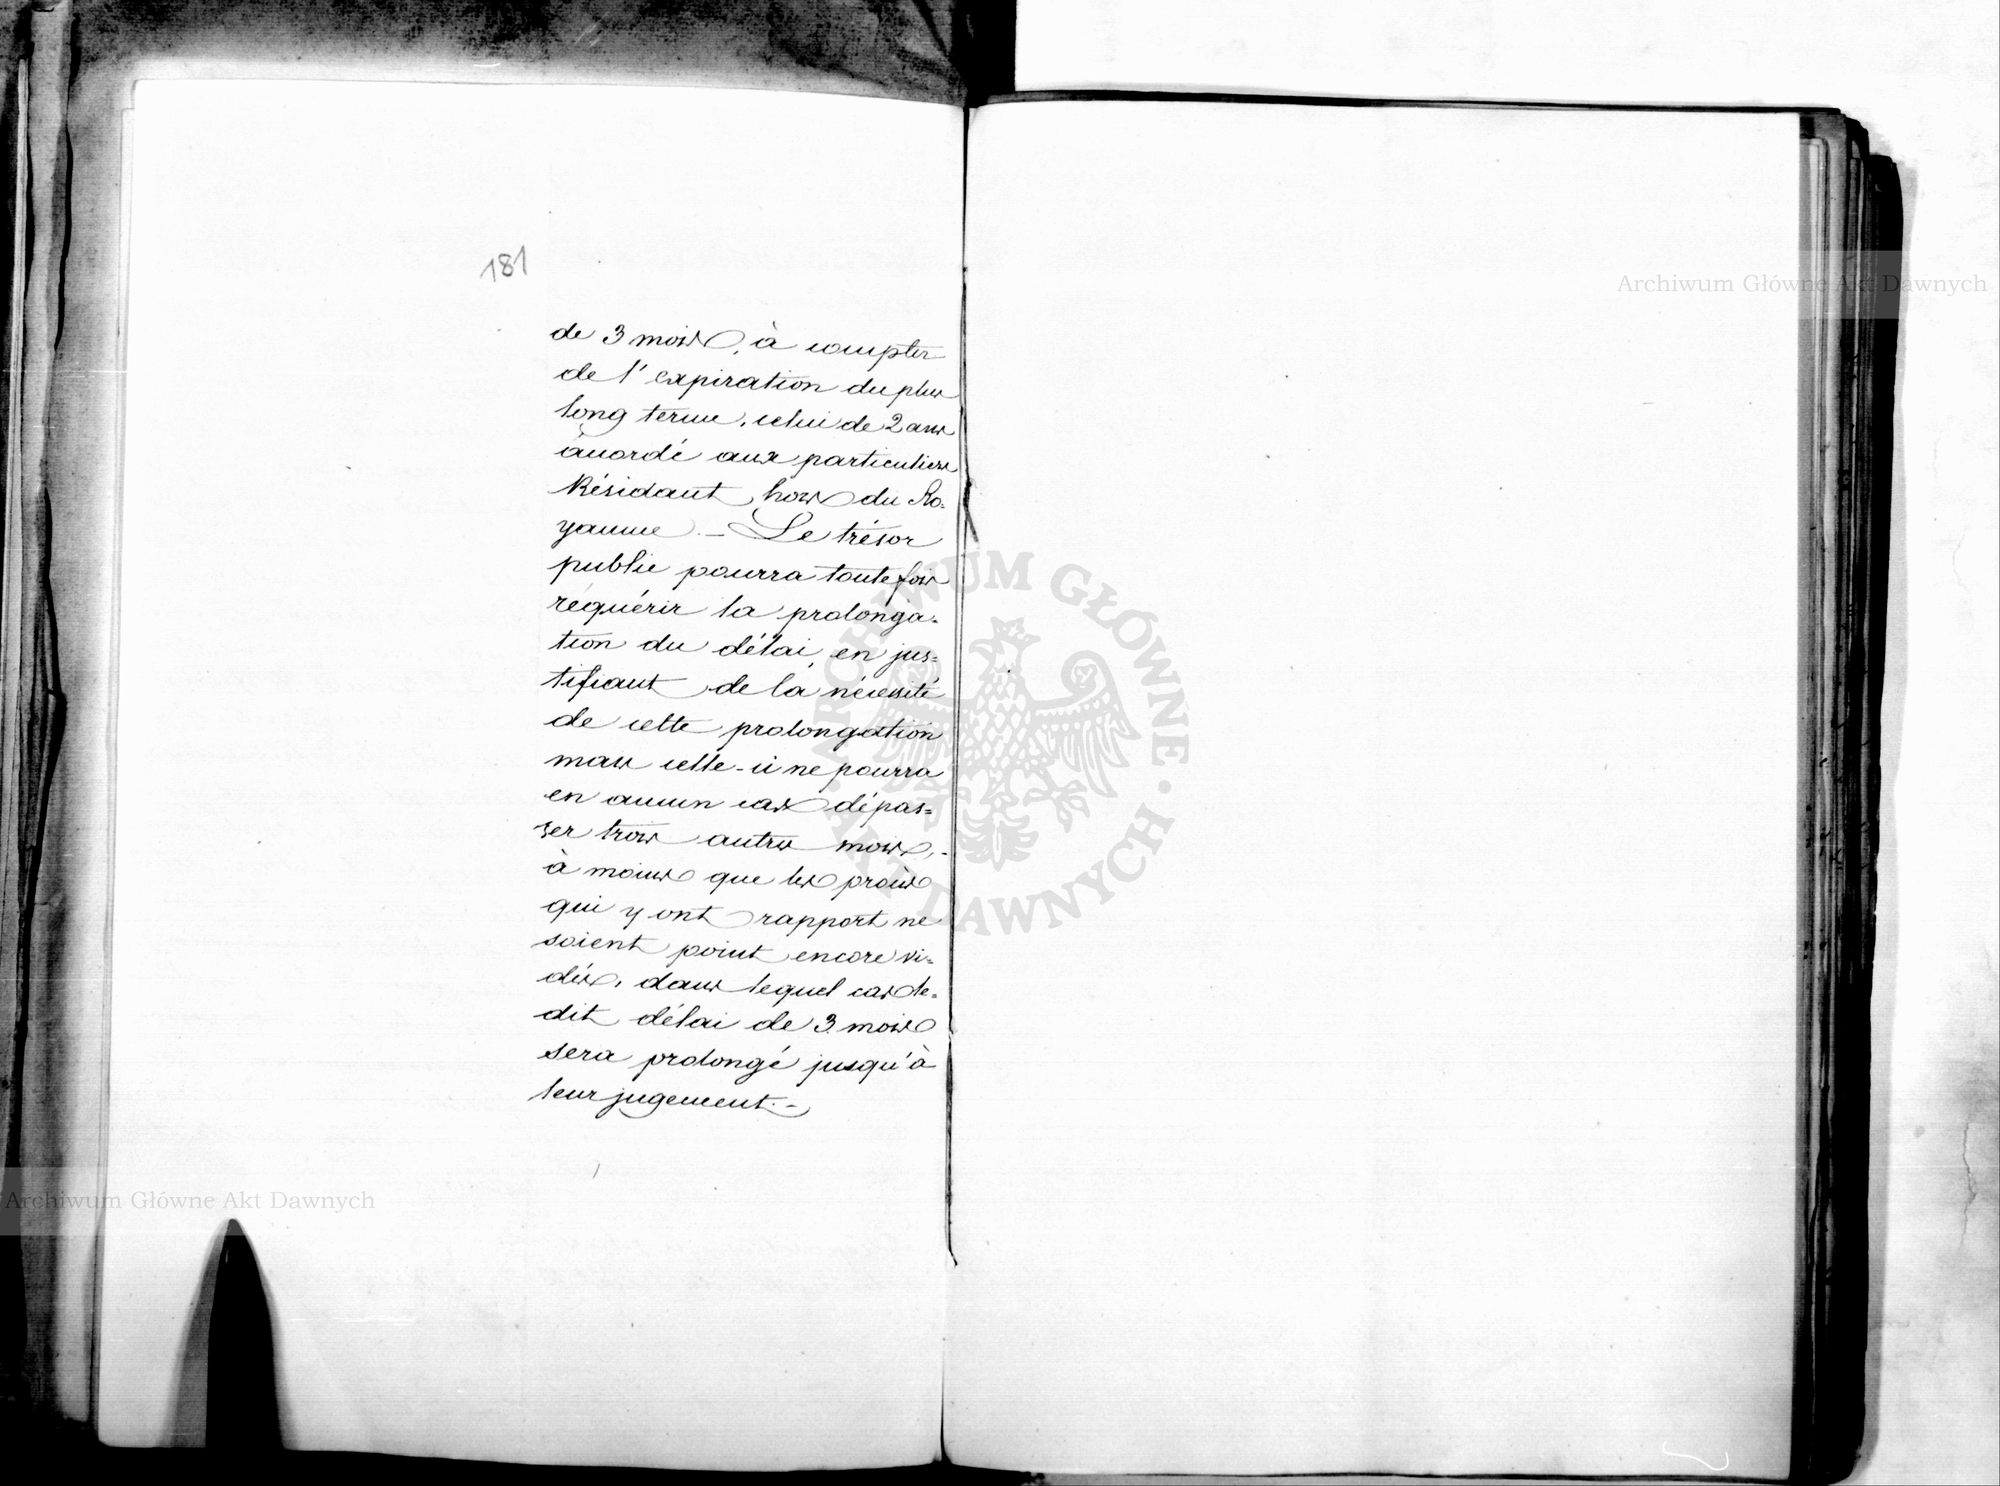 181
de 3 mois, à compter
de l'expiration du plus
long terme, celui de 2 ans
accordé aux particuliers
Résidant hors du Ro-
yaume. – Le trésor
public pourra toutefois
requérir la prolonga-
tion du délai, en jus-
tifiant de la nécessité
de cette prolongation
mais celle-ci ne pourra
en aucun cas dépas-
ser trois autres mois, -
à moins que les procès
qui y ont rapport ne
soient point encore vi-
dés, dans lequel cas le-
dit délai de 3 mois
sera prolongé jusqu'à
leur jugement. –
Archiwum Główne Akt Dawnych
ARCHIWUM GŁÓWNE · AKT DAWNYCH ·
Archiwum Główne Akt Dawnych